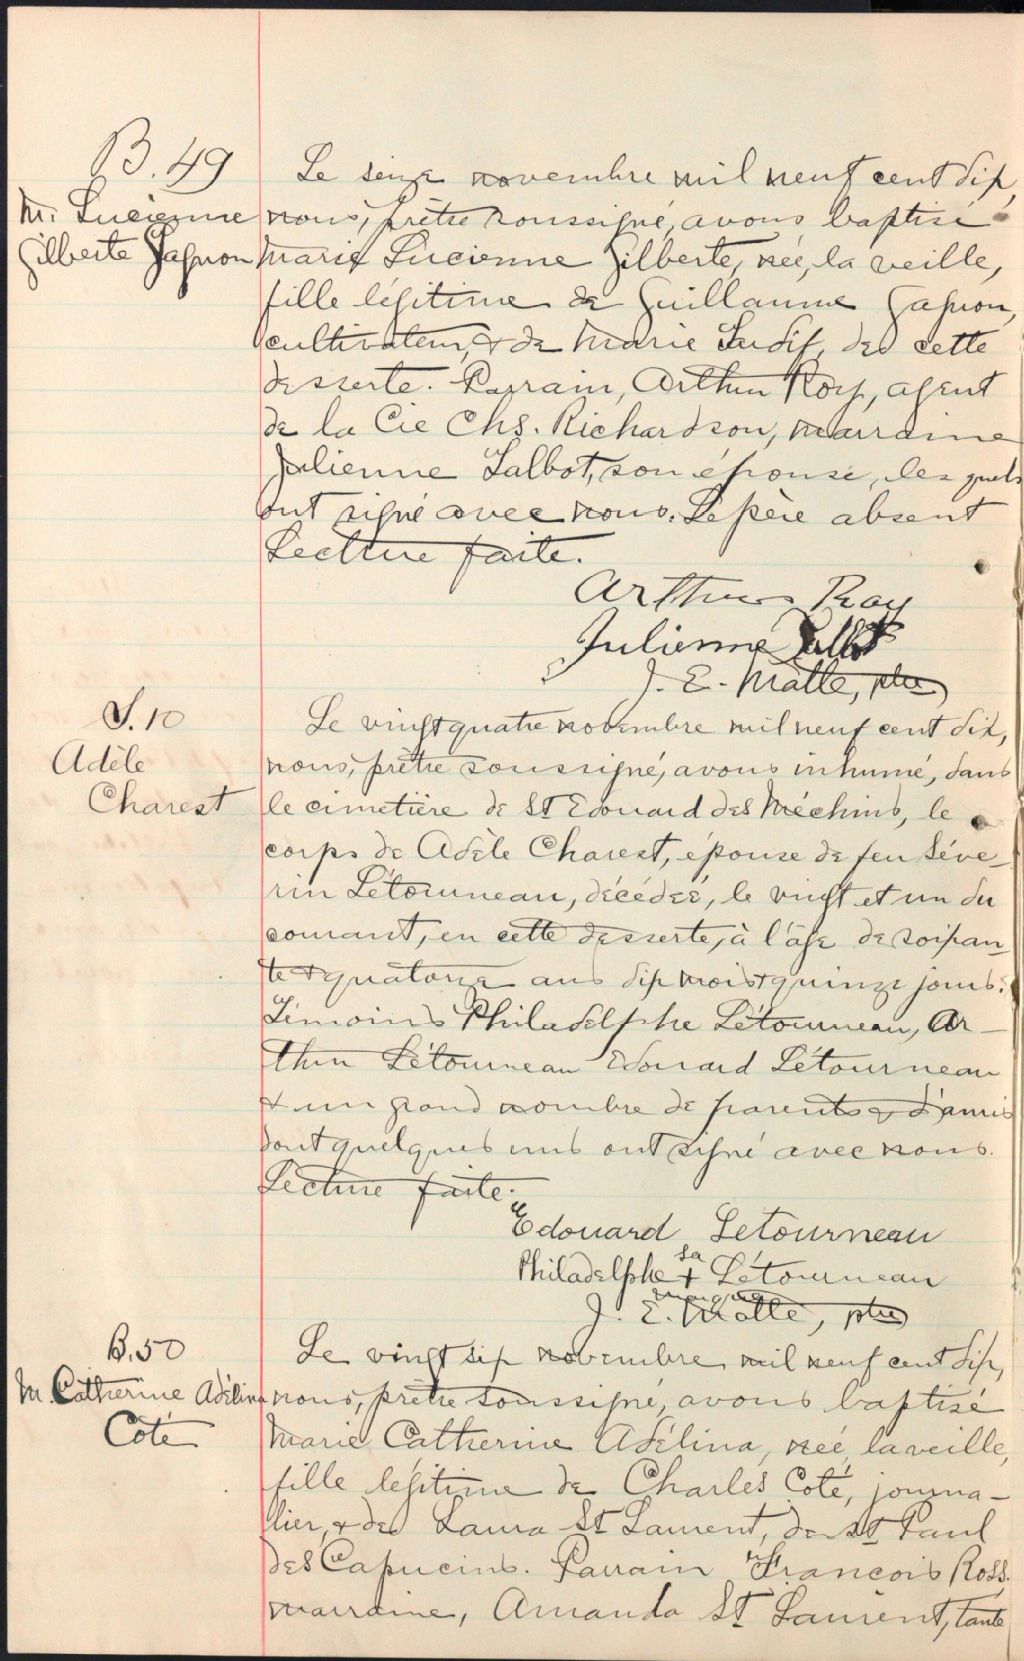 B. 49
M. Lucienne
Gilberte Gagnon
Le seize novembre mil neuf cent dix,
nous, prêtre soussigné, avons baptisé
Marie Lucienne Gilberte, née, la veille,
fille légitime de Guillaume Gagnon,
cultivateur, & de Marie de cette
desserte. Parrain, Arthur Roy, agent
de la Cie Chs. Richardson, marraine
Julienne Talbot, son épouse, lesquels
ont signé avec nous. Le père absent
Lecture faite.
Arthur Roy
Julienne Talbot
J. E. Matte, ptre
S. 10
Adèle
Charest
Le vingt quatre novembre mil neuf cent dix,
nous, prêtre soussigné, avons inhumé, dans
le cimetière de St Edouard des Méchins, le
corps de Adèle Charest, épouse de feu Séve-
rin Létourneau, décédée, le vingt et un du
courant, en cette desserte, à l'âge de soixan
te & quatorze ans dix mois & quinze jours.
Témoins Philadelphe Létourneau, Ar-
thur Létourneau Edouard Létourneau
& un grand nombre de parents & d'amis
dont quelques uns ont signé avec nous.
Lecture faite.
Edouard Letourneau
sa
Philadelphe + Létourneau
marque
J. E. Matte, ptre
B. 50
M. Catherine Adélina
Coté
Le vingt six novembre mil neuf cent dix,
nous, prêtre soussigné, avons baptisé
Marie Catherine Adélina, née la veille,
fille légitime de Charles Coté, journa-
lier, & de Laura St Laurent, de St Paul
des Capucins. Parrain François Ross.
marraine, Amanda St Laurent, tante